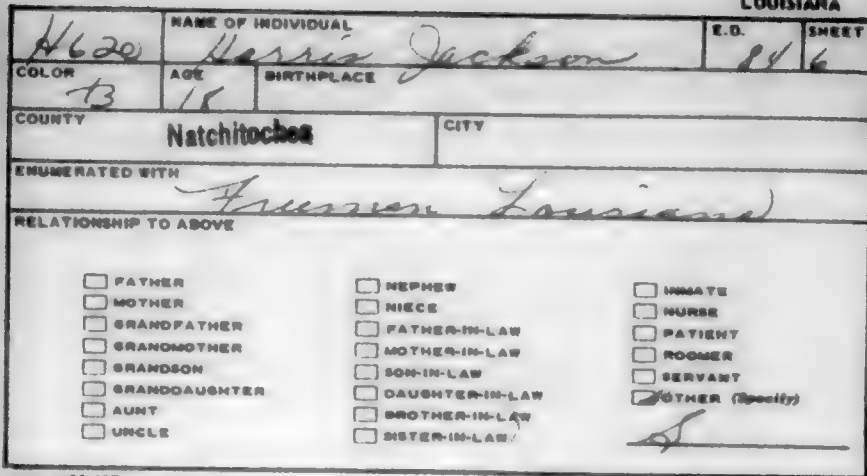 LOUISIANA
NAME OF INDIVIDUAL E.D. SHEET
H620 Harris Jackson 84 6
COLOR AGE BIRTHPLACE
B 18
COUNTY Natchitoches CITY
ENUMERATED WITH
Freeman Louisiana
RELATIONSHIP TO ABOVE
FATHER
MOTHER
GRANDFATHER
GRANDMOTHER
GRANDSON
GRANDDAUGHTER
AUNT
UNCLE
NEPHEW
NIECE
FATHER-IN-LAW
MOTHER-IN-LAW
SON-IN-LAW
DAUGHTER-IN-LAW
BROTHER-IN-LAW
SISTER-IN-LAW
INMATE
NURSE
PATIENT
ROOMER
SERVANT
OTHER (Specify)
S